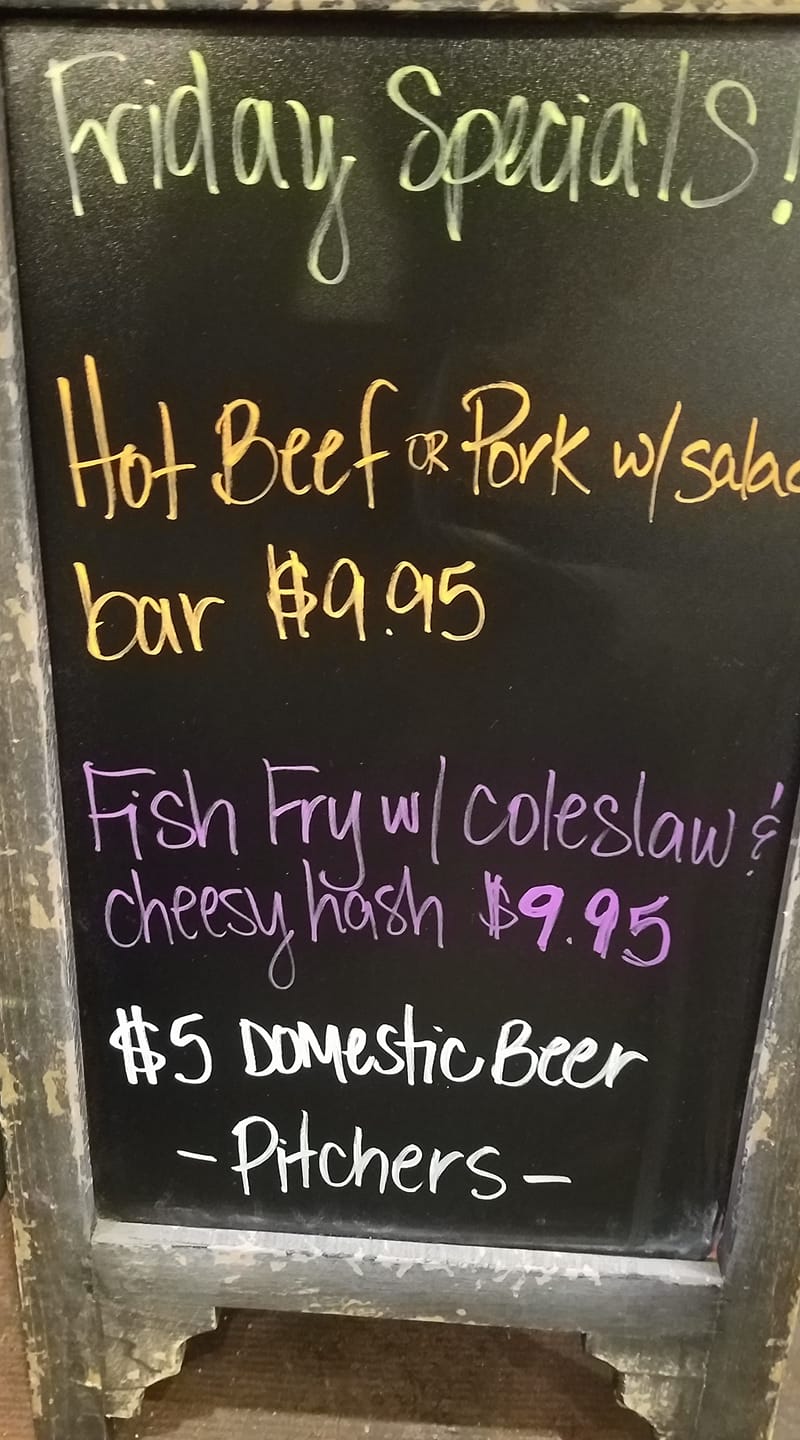 Friday Specials!
Hot Beef OR Pork w/ salad
bar $9.95
Fish Fry w/ coleslaw &
cheesy hash $9.95
$5 Domestic Beer
- Pitchers -